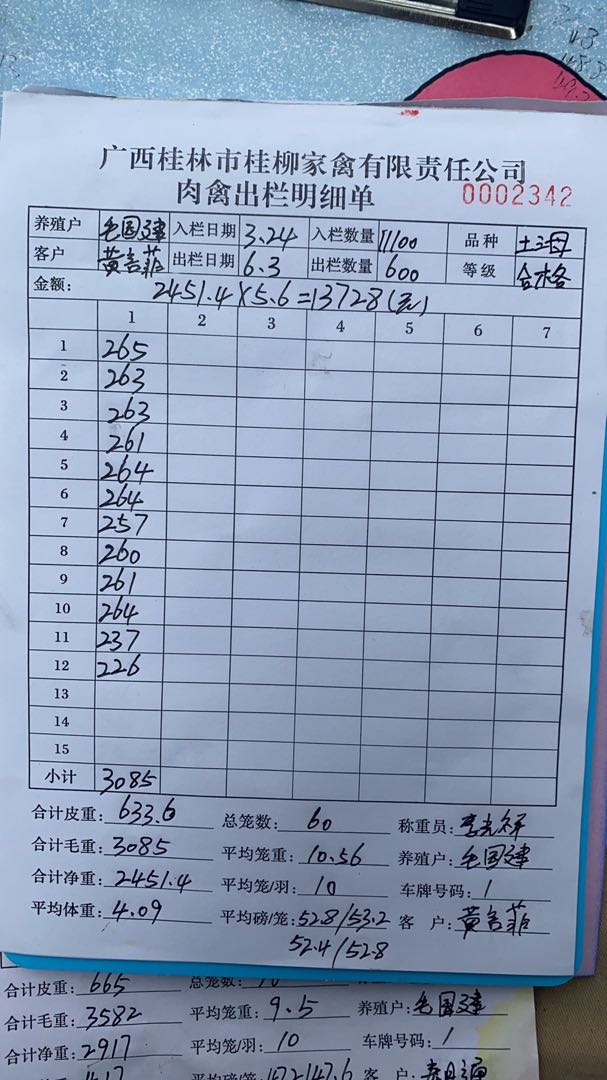 广西桂林市桂柳家禽有限责任公司
肉禽出栏明细单 0002342
养殖户 毛国建 入栏日期 3.24 入栏数量 11100 品种 土2母
客户 黄吉菲 出栏日期 6.3 出栏数量 600 等级 合格
金额: 2451.4×5.6=13728(元)
1 2 3 4 5 6 7
1 265
2 263
3 263
4 261
5 264
6 264
7 257
8 260
9 261
10 264
11 237
12 226
13
14
15
小计 3085
合计皮重: 633.6 总笼数: 60 称重员:
合计毛重: 3085 平均笼重: 10.56 养殖户: 毛国建
合计净重: 2451.4 平均笼/羽: 10 车牌号码: 1
平均体重: 4.09 平均磅/笼: 52.8/53.2 客 户: 黄吉菲
52.4/52.8
合计皮重: 665 总笼数:
合计毛重: 3582 平均笼重: 9.5 养殖户: 毛国建
合计净重: 2917 平均笼/羽: 10 车牌号码: 1
客 户: